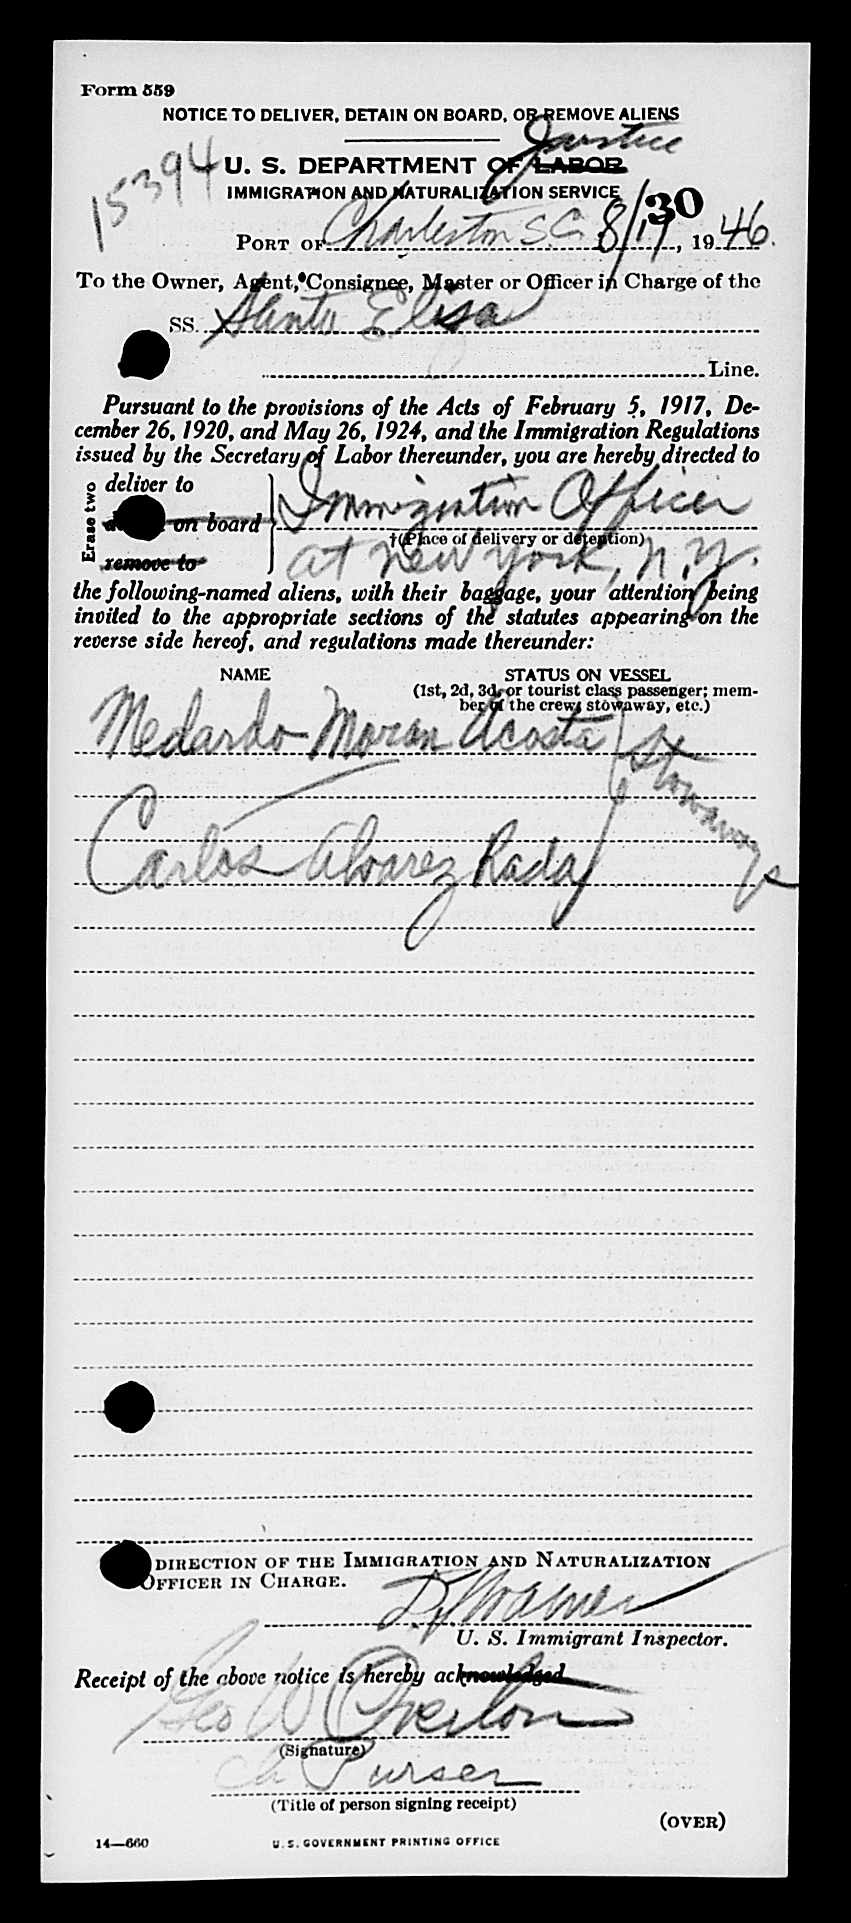 Form 559
NOTICE TO DELIVER, DETAIN ON BOARD, OR REMOVE ALIENS
Justice
15394
U. S. DEPARTMENT OF LABOR
IMMIGRATION AND NATURALIZATION SERVICE
30
PORT OF Charleston S.C. 8/19, 1946.
To the Owner, Agent, Consignee, Master or Officer in Charge of the
SS. Santa Elisa
Line.
Pursuant to the provisions of the Acts of February 5, 1917, De-
cember 26, 1920, and May 26, 1924, and the Immigration Regulations
issued by the Secretary of Labor thereunder, you are hereby directed to
Erase two
deliver to
on board
remove to
Immigration Officer
†(Place of delivery or detention)
at New York, N.Y.
the following-named aliens, with their baggage, your attention being
invited to the appropriate sections of the statutes appearing on the
reverse side hereof, and regulations made thereunder:
NAME
STATUS ON VESSEL
(1st, 2d, 3d, or tourist class passenger; mem-
ber of the crew, stowaway, etc.)
Medardo Moran Acosta
Stowaways
Carlos Alvarez Rada
DIRECTION OF THE IMMIGRATION AND NATURALIZATION
OFFICER IN CHARGE.
U. S. Immigrant Inspector.
Receipt of the above notice is hereby acknowledged
Geo W Overton
(Signature)
Ch Purser
(Title of person signing receipt)
(OVER)
14—660
U. S. GOVERNMENT PRINTING OFFICE